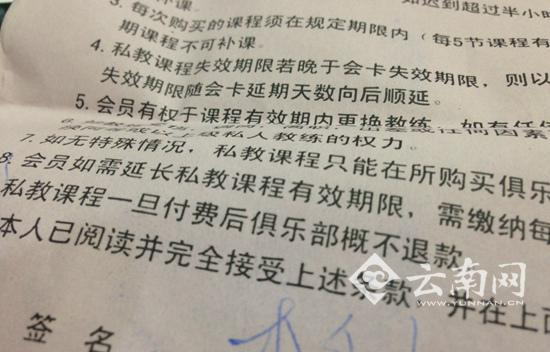 补课。
如迟到超过半小时
3. 每次购买的课程须在规定期限内（每5节课程有
期课程不可补课。
4. 私教课程失效期限若晚于会卡失效期限，则以
失效期限随会卡延期天数向后顺延。
5. 会员有权于课程有效期内更换教练，如有任何
6.
或任何因素
私人教练的权力。
7. 如无特殊情况，私教课程只能在所购买俱乐
8. 会员如需延长私教课程有效期限，需缴纳每
私教课程一旦付费后俱乐部概不退款
本人已阅读并完全接受上述条款，并在上面
签名
云南网
WWW.YUNNAN.CN